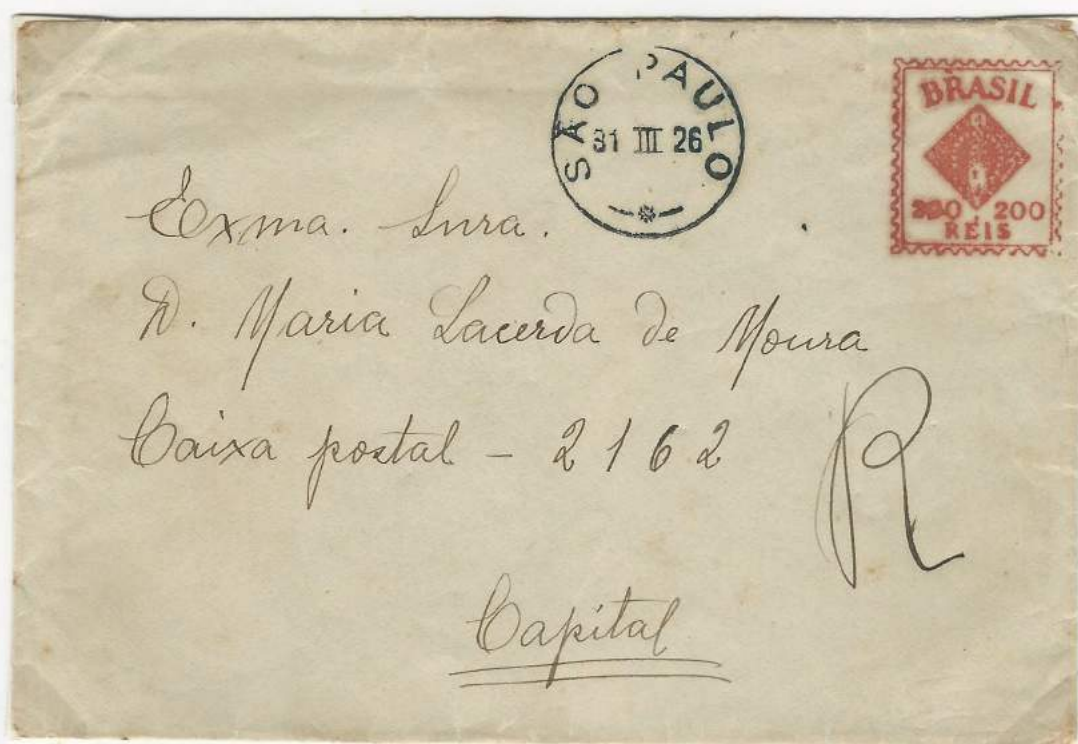 SÃO PAULO
31 III 26
BRASIL
200 200
REIS
Exma. Snra.
D. Maria Lacerda de Moura
Caixa postal - 2162
R
Capital